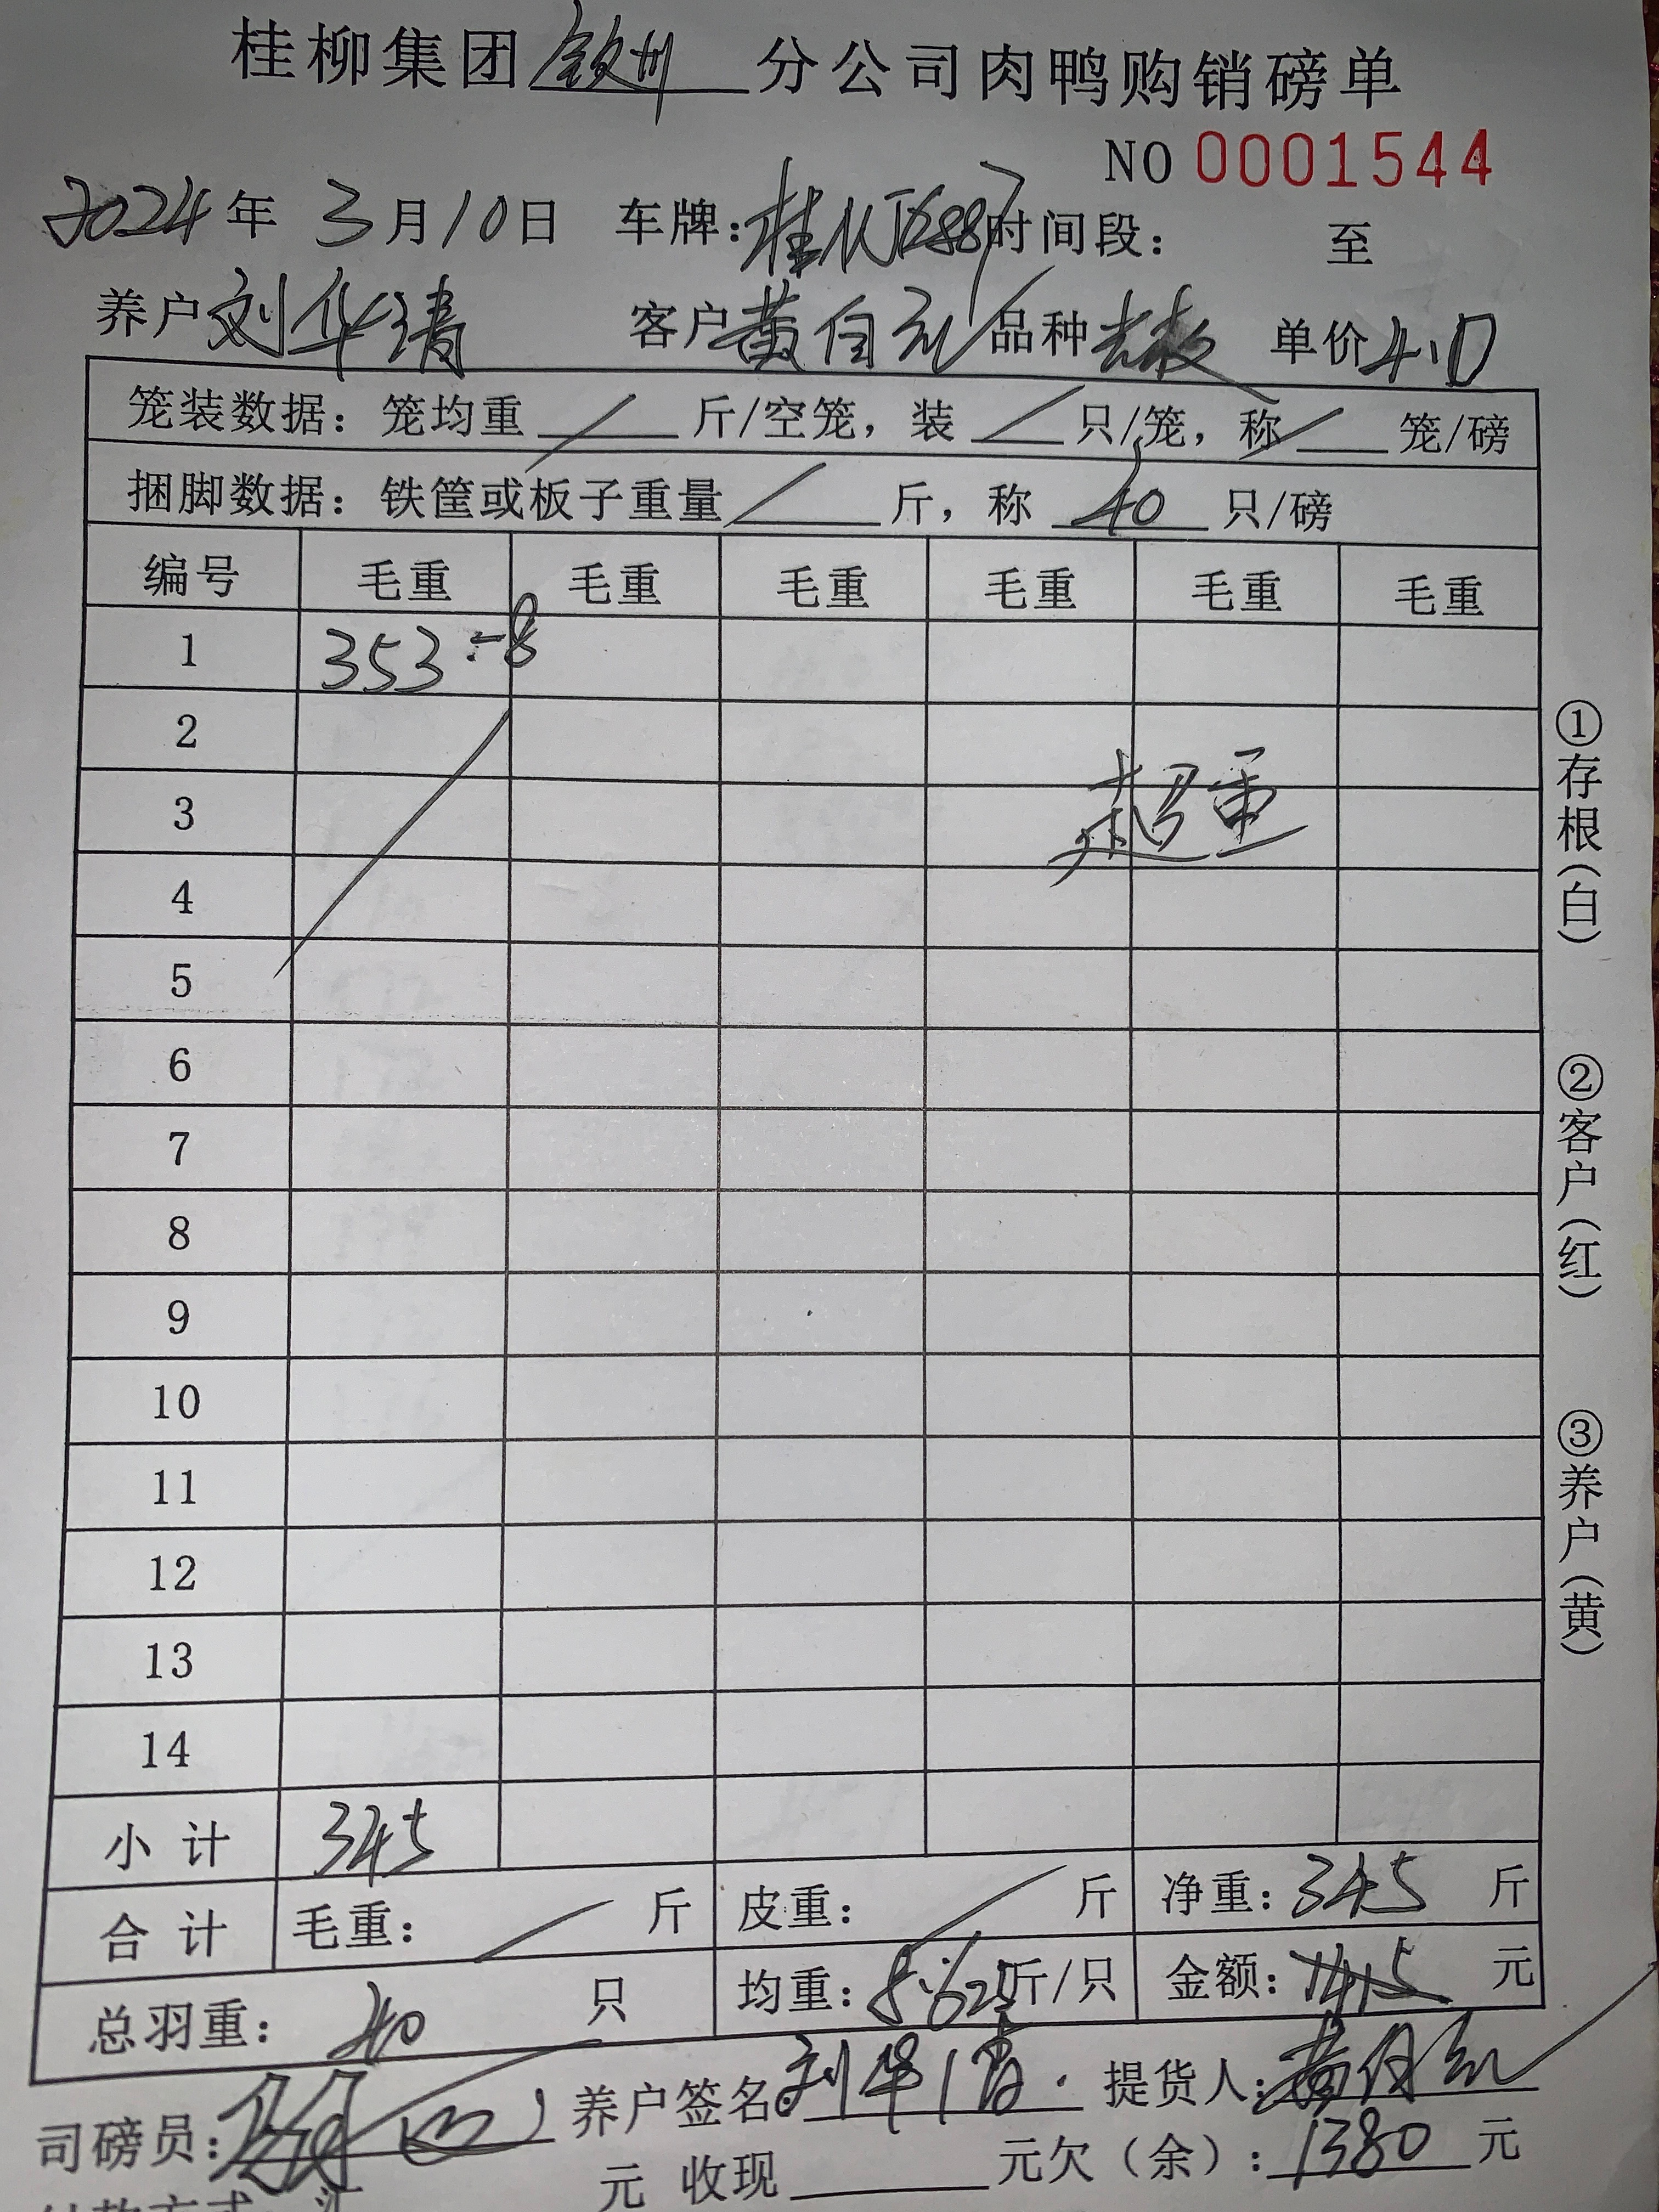 桂柳集团钦州分公司肉鸭购销磅单
NO 0001544
2024年 3月10日 车牌: 时间段: 至
养户刘华清 客户黄自 品种 单价4.0
笼装数据: 笼均重 / 斤/空笼, 装 / 只/笼, 称 / 笼/磅
捆脚数据: 铁筐或板子重量 / 斤, 称 40 只/磅
编号 毛重 毛重 毛重 毛重 毛重 毛重
1 353-8
2
3 超重
4
5
6
7
8
9
10
11
12
13
14
小计 345
合计 毛重: / 斤 皮重: / 斤 净重: 345 斤
总羽重: 40 只 均重: 8.625斤/只 金额: 元
司磅员: 养户签名: 刘华清. 提货人: 黄自
元 收现 元欠(余): 1380 元
付款方式: 汇
①存根(白)
②客户(红)
③养户(黄)